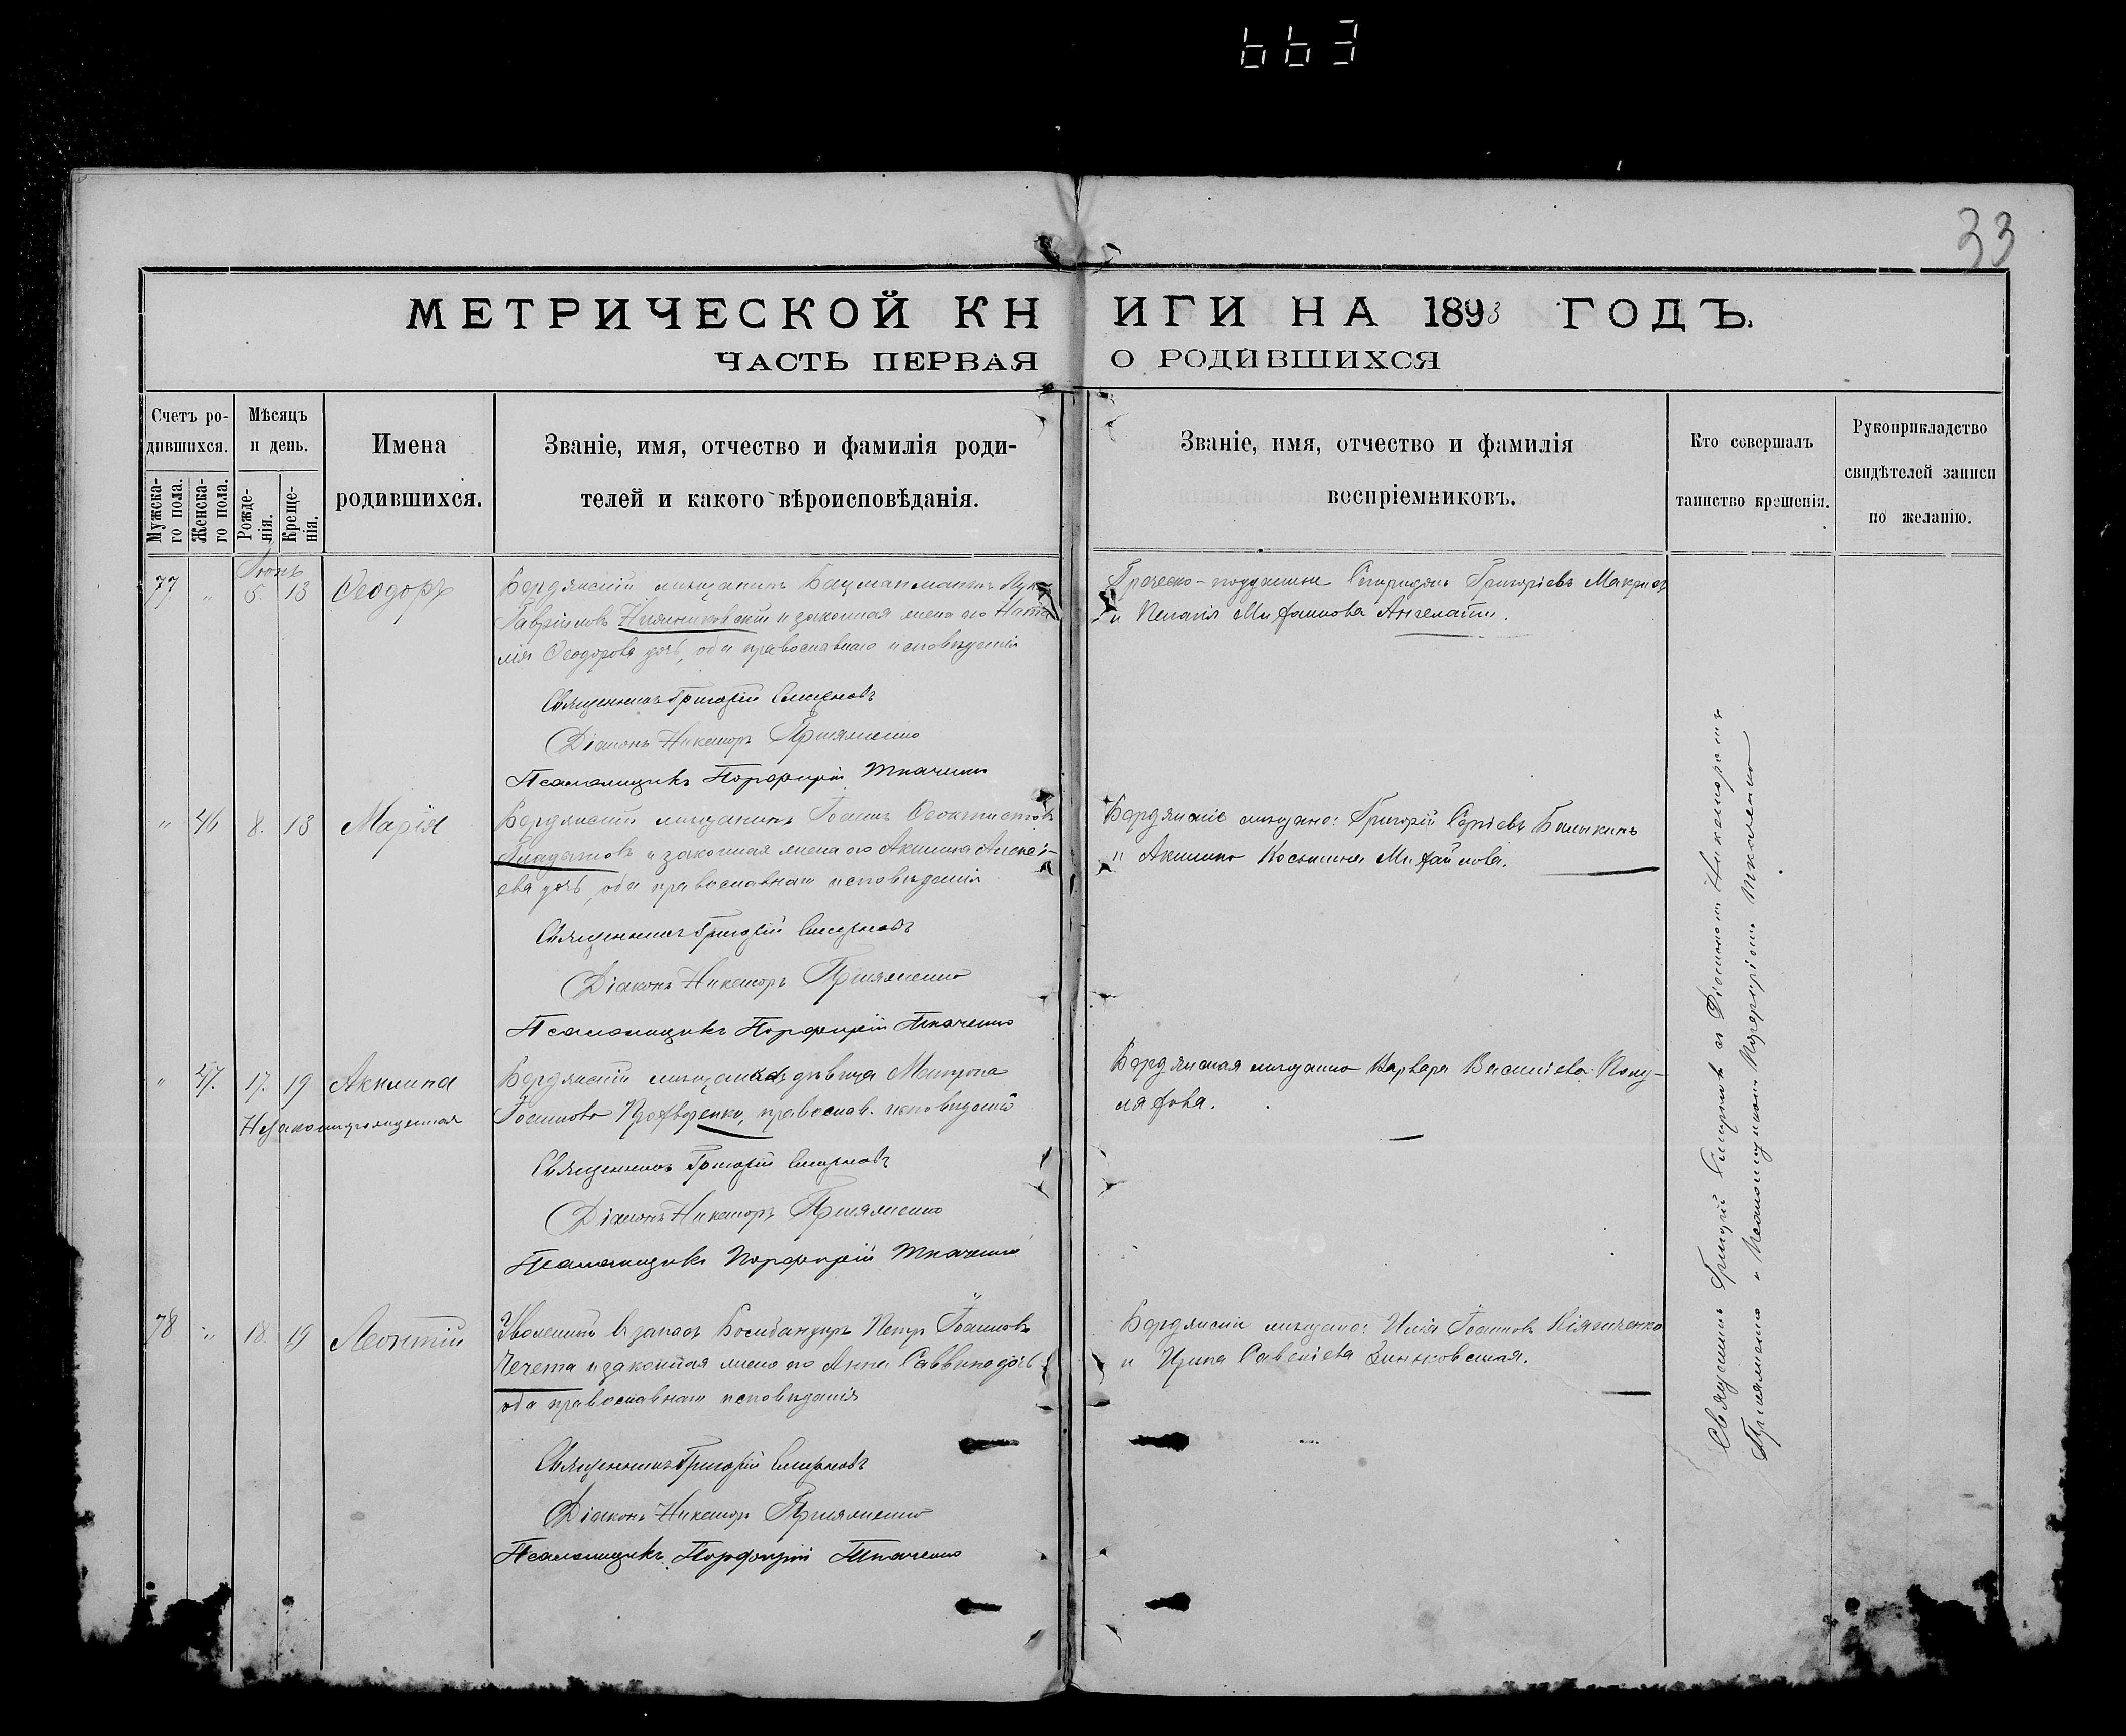 663
33
МЕТРИЧЕСКОЙ КНИГИ НА 1893 ГОДЪ.
ЧАСТЬ ПЕРВАЯ О РОДИВШИХСЯ
Счетъ родившихся.
Мужскаго пола.
Женскаго пола.
Мѣсяцъ и день.
Рожденія.
Крещенія.
Имена родившихся.
Званіе, имя, отчество и фамилія родителей и какого вѣроисповѣданія.
Званіе, имя, отчество и фамилія воспріемниковъ.
Кто совершалъ таинство крещенія.
Рукоприкладство свидѣтелей записи по желанію.
Іюнь
77 " 5. 13 Ѳеодоръ
Бердянскій мѣщанинъ Лука
Гавріиловъ и законная жена его Ната
лія Ѳеодорова дочь, оба православнаго исповѣданія
Греческо-подданные Спиридонъ Григоріевъ
и Пелагія
Священникъ Григорій Смирновъ
Діаконъ Никаноръ
Псаломщикъ Порфирій Ткаченко
" 46 8. 13 Марія
Бердянскій мѣщанинъ Іоаннъ Ѳеоктистовъ
и законная жена его Акилина Алексѣ-
ева дочь, оба православнаго исповѣданія
Бердянскіе мѣщане: Григорій Сергіевъ
и Акилина Косьмина Михайлова.
Священникъ Григорій Смирновъ
Діаконъ Никаноръ
Псаломщикъ Порфирій Ткаченко
" 47. 17. 19 Акилина
Незаконнорожденная
Бердянская мѣщанка дѣвица Матрона
Іоаннова православ. исповѣданія
Бердянская мѣщанка Варвара Василіева
Священникъ Григорій Смирновъ
Діаконъ Никаноръ
Псаломщикъ Порфирій Ткаченко
78 " 18. 19 Леонтій
Уволенный въ запасъ Бомбандиръ Петръ Іоанновъ
Чечета и законная жена его Анна Саввина дочь
оба православнаго исповѣданія
Бердянскіе мѣщане: Илія Іоанновъ
и Ирина Савеліева Зиньковская.
Священникъ Григорій Смирновъ
Діаконъ Никаноръ
Псаломщикъ Порфирій Ткаченко
Священникъ Григорій Смирновъ съ Діакономъ Никаноромъ
и Псаломщикомъ Порфиріемъ Ткаченко